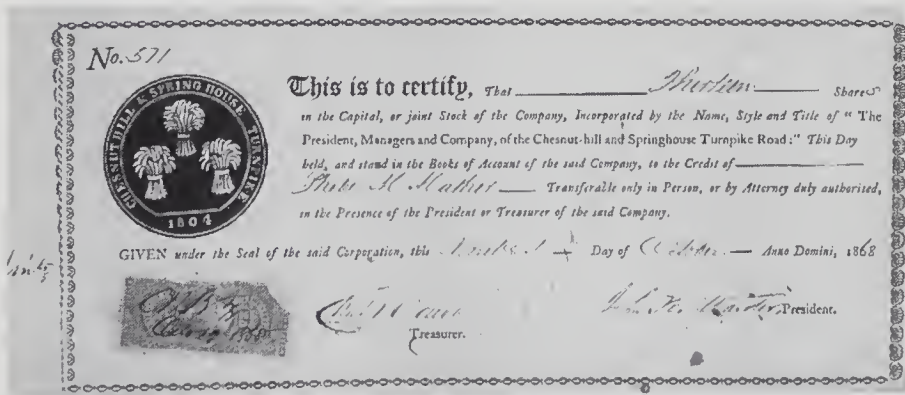 No. 571
CHESNUTHILL & SPRING HOUSE TURNPIKE
1804
This is to certify, That Thirteen Shares
in the Capital, or joint Stock of the Company, Incorporated by the Name, Style and Title of "The
President, Managers and Company, of the Chesnut-hill and Springhouse Turnpike Road:" This Day
held, and stand in the Books of Account of the said Company, to the Credit of
M Mather Transferable only in Person, or by Attorney duly authorised,
in the Presence of the President or Treasurer of the said Company.
GIVEN under the Seal of the said Corporation, this Day of October Anno Domini, 1868
President.
Treasurer.